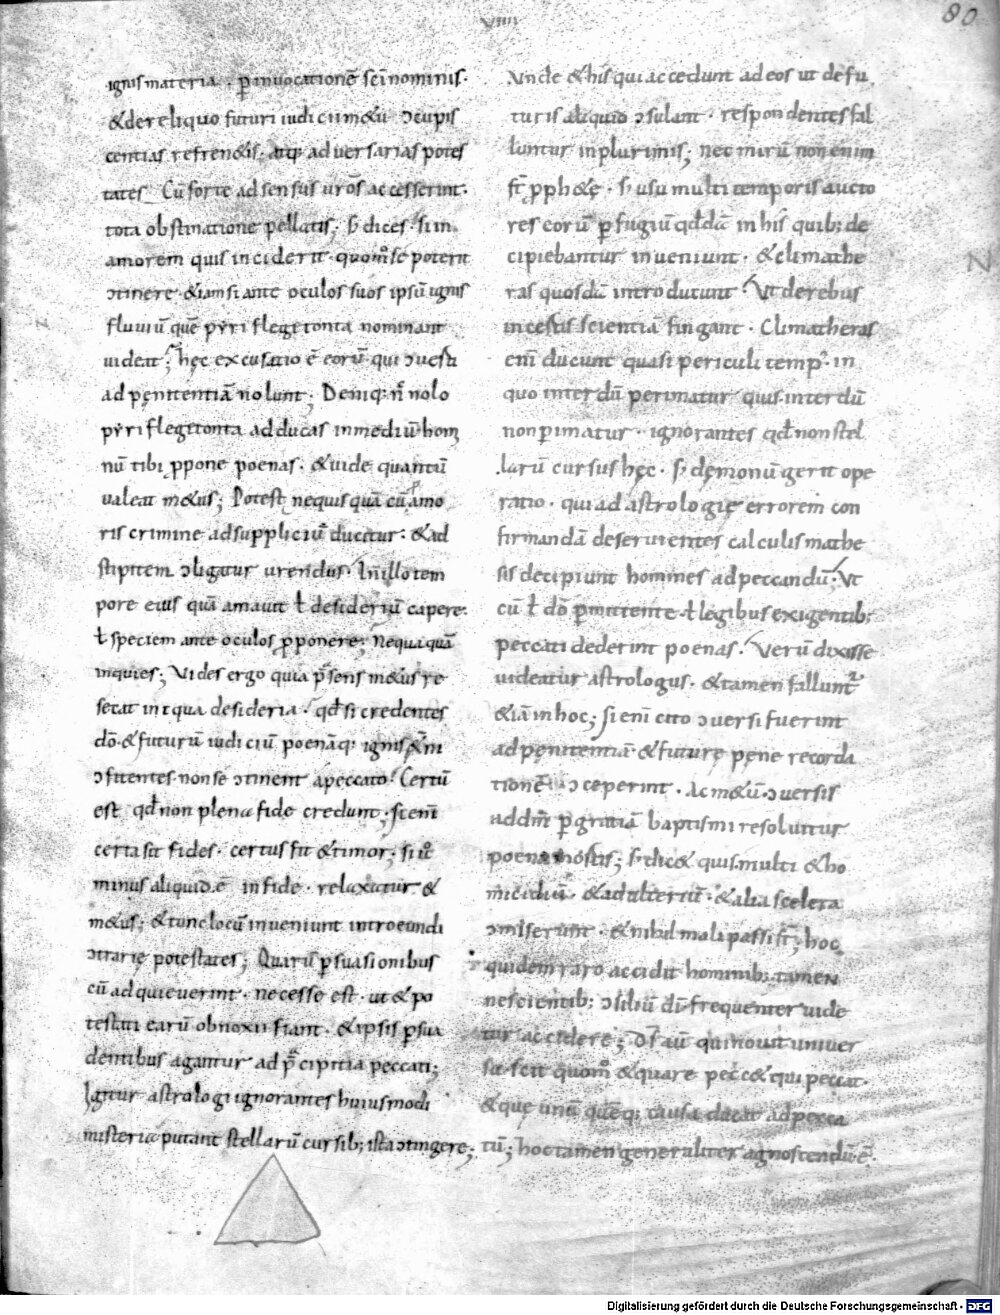 VIIII
80
ignis materia · ꝑ invocationē sc̄i nominis ·
& de reliquo futuri iudicii m&ū ↄcupis
centias refren&is · atq; adversarias potes
tates Cū forte ad sensus vr̄os accesserint ·
tota obstinatione pellatis; s; dices · si in
amorem quis inciderit · quom̊ se poterit
ↄtinere · & iam si ante oculos suos ipsū ignis
fluviū quē pyriflegetonta nominant
videat; hęc excusatio ē eorū qui ↄverti
ad pęnitentiā nolunt; Deniq; n̄ nolo
pyriflegetonta adducas in mediū homi
nū tibi ꝓpone poenas · & vide quantū
valeat m&us; Potest nequisquā cū amo
ris crimine ad suppliciū ducitur · & ad
stipitem ↄligatur urendus · In illo tem
pore eius quā amavit ł desideriū capere ·
ł speciem ante oculos ꝓponere; Nequaquā
inquies; Vides ergo quia p̄sens m&us re
secat iniqua desideria · qd̄ si credentes
dō · & futurū iudiciū poenāq; ignis &n̄i
ↄfitentes · non se ↄtinent a peccato · Certū
est qd̄ non plena fide credunt; si eni
certa sit fides · certus fit & timor; si ů
minus aliquid ē in fide · relaxatur &
m&us; & tunc locū inveniunt introeundi
ↄtrarię potestates; Quarū ꝑsuasionibus
cū adquieverint · necesse est · ut & po
testati earū obnoxii fiant · & ipsis ꝑsua
dentibus agantur ad p̄cipitia peccati;
Igitur astrologi ignorantes huiusmodi
misteria putant stellarū cursib; ista ↄtingere;
Unde & his qui accedunt ad eos ut de fu
turis aliquid ↄsulant · respondentes fal
luntur in plurimis; nec mirū non enim
st̄ ꝓph&ę · s; usu multi temporis aucto
res eorū ꝑfugiū qd̄dā in his quib; de
cipiebantur inveniunt · & climathe
ras quosdā introducunt · Ut de rebus
incertis scientiā fingant · Climatheras
eni ducunt quasi periculi temp⁹ · in
quo interdū perimatur quis interdū
non ꝑimatur · ignorantes qd̄ non stel
larū cursus hęc · s; dęmonū gerit ope
ratio · qui ad astrologię errorem con
firmandā deservientes calculis mathe
sis decipiunt homines ad peccandū · Ut
cū ł dō ꝑmittente ł legibus exigentib;
peccati dederint poenas · Verū dixisse
videatur astrologus · & tamen fallunt᷑
&iā in hoc; si eni cito ↄversi fuerint
ad pęnitentiā · & future pęne recorda
tionē ↄceperint · Ac m&ū · ↄversis
ad dn̄m ꝑ gratiā baptismi resolvitur
poena mortis; s; dic& quis · multi & ho
micidiū · & adulteriū · & alia scelera
ↄmiserunt · & nihil mali passi st̄; hoc
quidem raro accidit hominib; · tamen
nescientib; ↄsiliū dī frequenter vide
tur accidere; Ds̄ aū qui novit univer
sa · scit quom̊ & quare pecc& qui peccat ·
& quę unū quēq; causa ducat ad pecca
tū; hoc tamen generaliter agnoscendū ē ·
N
Digitalisierung gefördert durch die Deutsche Forschungsgemeinschaft · DFG